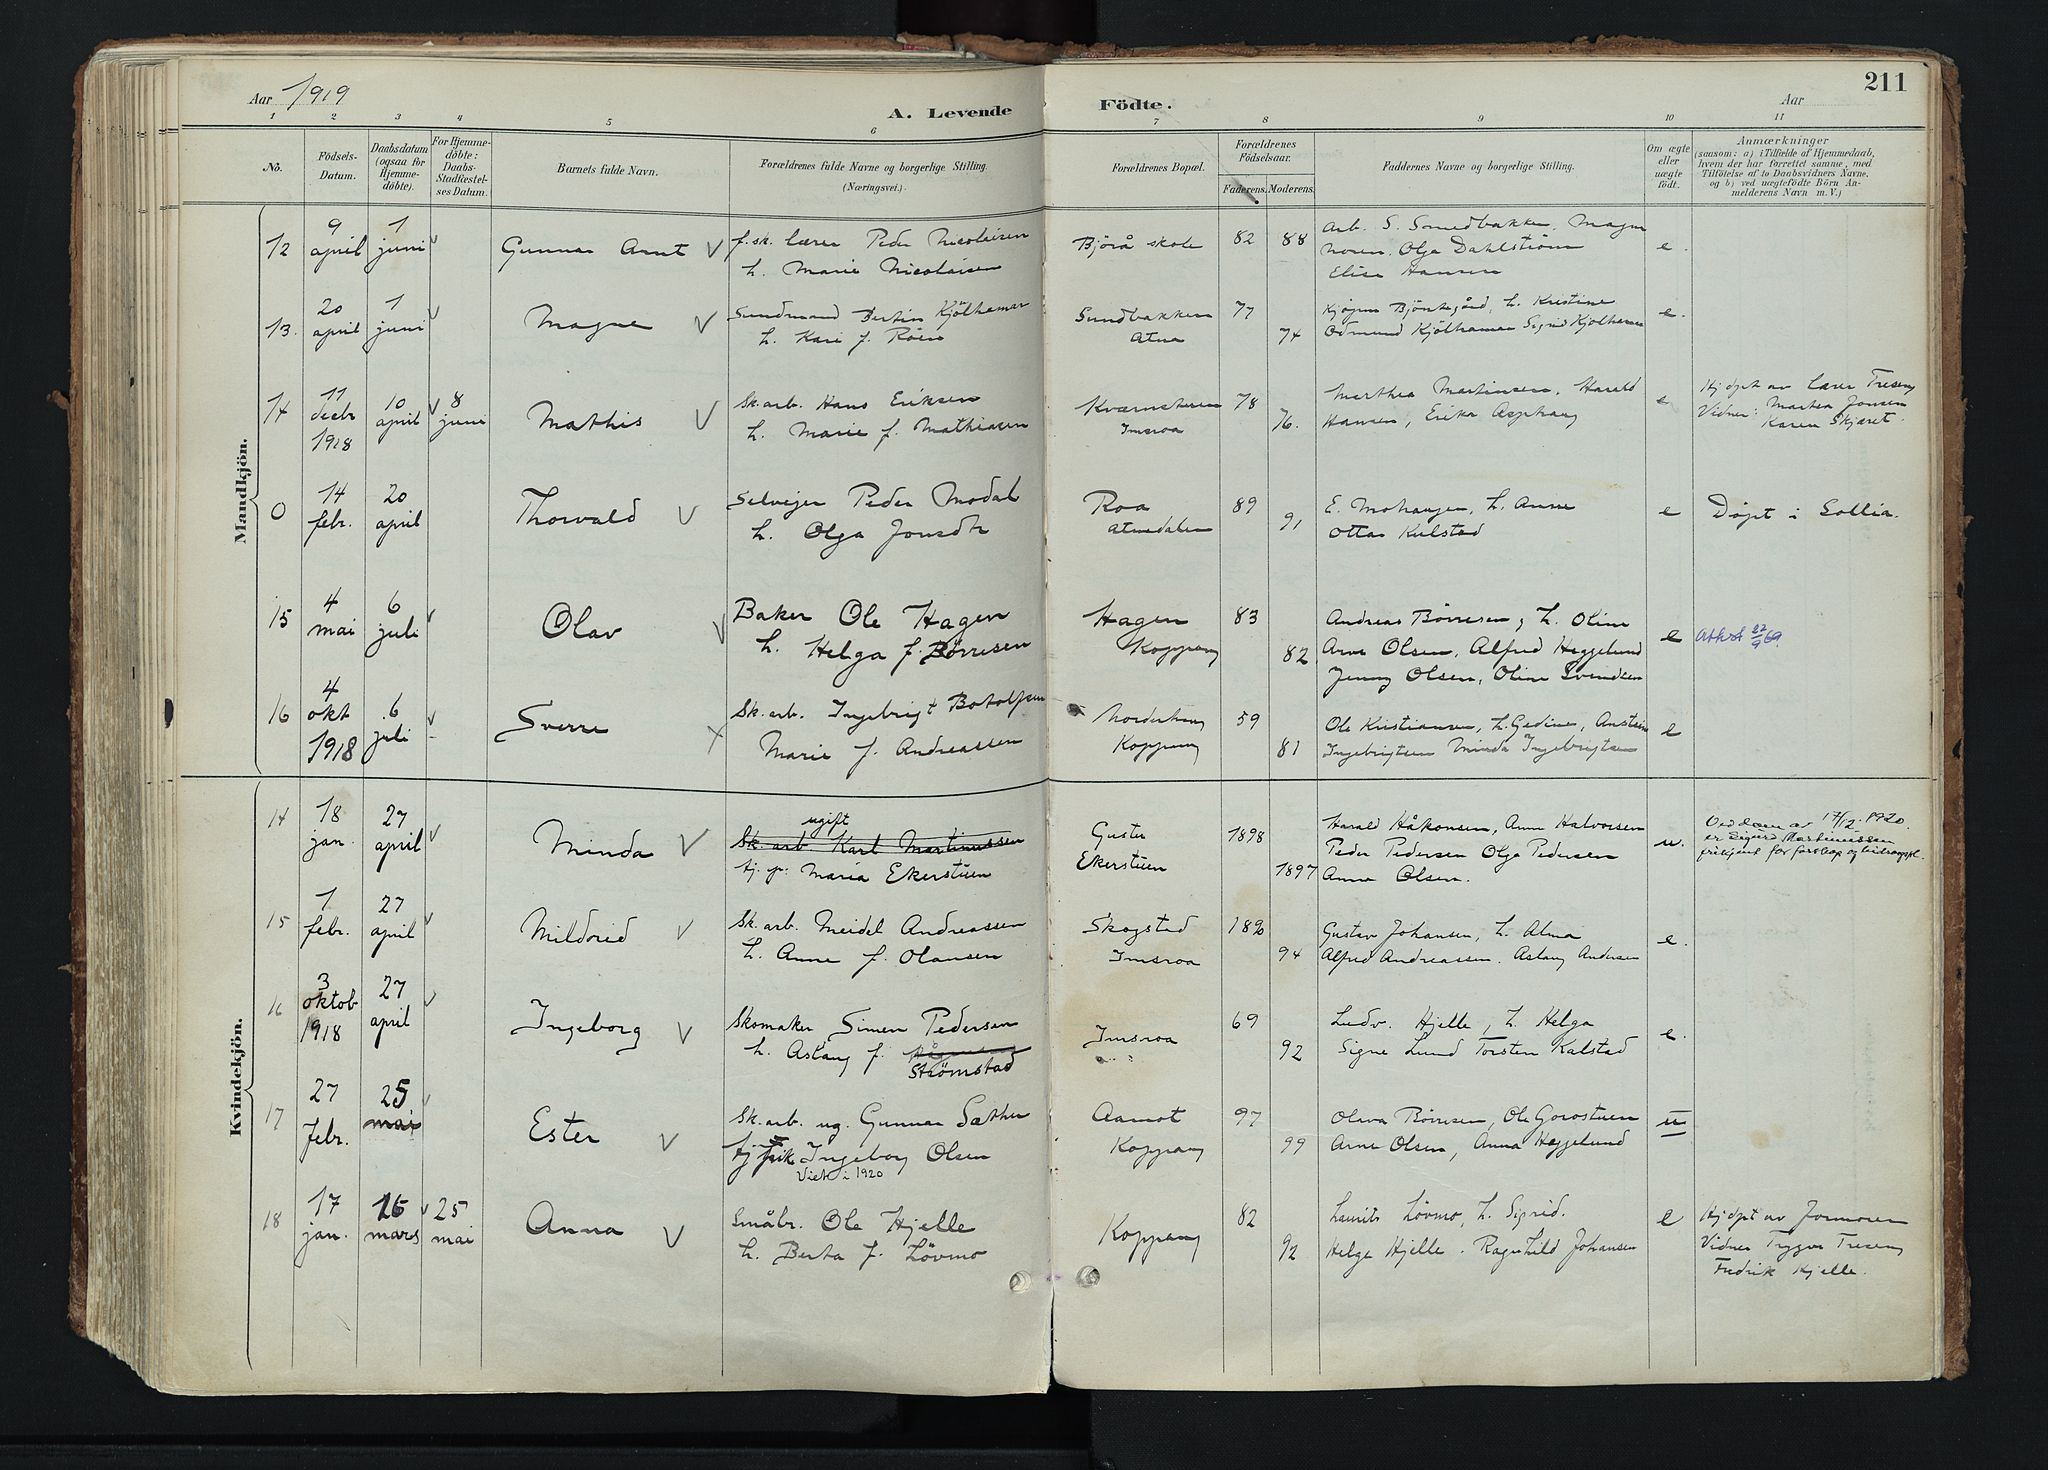 211
Aar 1919
A. Levende
Födte.
Aar
1 2 3 4 5 6 7 8 9 10 11
No.
Födsels-Datum.
Daabsdatum (ogsaa for Hjemme-döbte).
For Hjemme-döbte: Daabs-Stadfæstel-ses Datum.
Barnets fulde Navn.
Forældrenes fulde Navne og borgerlige Stilling.
(Næringsvei.)
Forældrenes Bopæl.
Forældrenes Födselsaar.
Faderens. Moderens.
Faddernes Navne og borgerlige Stilling.
Om ægte eller uægte födt.
Anmærkninger
(saasom: a) i Tilfælde af Hjemmedaab,
hvem der har forrettet samme, med
Tilföielse af to Daabsvidners Navne,
og b) ved uægtefödte Börn An-
melderens Navn m. V.)
Mandkjön.
12 9 april 1 juni Gunnar Arnt f. sk. lærer Peder Nicolaisen
h. Marie Nicolaisen
Bjørå skole 82 88
Arb. S. Smedbakken, Magne
Noren. Olga Dahlstrøm
Elise Hansen
e.
13. 20 april 1 juni Magne Sundmand Bertin Kjølhamar
h. Kari f. Røen
Sundbakken
Atna
77 74
h. Kristine
Odmund Kjølhamar Sigrid Kjølhamar
e.
14 11 decbr 1918 10 april 8 juni Mathis Sk. arb. Hans Eriksen
h. Marie f. Mathiasen
Imsroa
78 76.
Marthea Martinsen, Harald
Hansen, Erika Asphaug
e
Hj døpt av lærer Treseng
Vidner: Martea Jonsen
Karen Skjæret.
0 14 febr. 20 april Thorvald Selvejer Peder Modal
h. Olga Jonsdtr
Roa
Atnedalen
89 91
E. Mohaugen, h. Anne
Ottar Kulstad
e
Døpt i Sollia.
15 4 mai 6 juli Olav Baker Ole Hagen
h. Helga f. Børresen
Hagen
Koppang
83 82
Andreas Børresen, h. Oline
Arne Olsen, Alfred Heggelund
Jenny Olsen, Oline Svendsen
e
Attest 22/9 69.
16 4 okt 1918 6 juli Sverre Sk. arb. Ingebrigt Botolfsen
Marie f. Andreassen
Norderhaug
Koppang
59 81
Ole Kristiansen, h. Gedine, Anstein
Ingebrigtsen Minda Ingebrigtsen
e
Kvindekjön.
14 18 jan. 27 april Minda ugift
Sk. arb. Karl Martinussen
tj. p: Maria Ekerstuen
Ekerstuen
1898 1897
Harald Håkonsen, Anne Halvorsen
Peder Pedersen Olga Pedersen
Anna Olsen.
u.
Ved dom av 17/12 1920
er Sigurd Martinussen
frikjent for farskap og bidragspl.
15 1 febr. 27 april Mildrid Sk. arb. Meidel Andreassen
h. Anne f. Olausen
Skogstad
Imsroa
1890 94
Gustav Johansen, h. Alma
Alfred Andreassen. Aslaug Andersen
e.
16 3 oktob 1918 27 april Ingeborg Skomaker Simen Pedersen
h. Aslaug f. Strømstad
Imsroa
69 92
Ludv. Hjelle, h. Helga
Signe Lund Torsten Kalstad
e.
17 27 febr. 25 mai Ester Sk. arb. ug. Gunnar Sæther
tj. pik Ingeborg Olsen
Viet i 1920
Aamot
Koppang
97 99
Olava Børresen, Ole Gorostuen
Arne Olsen, Anna Heggelund
u
18 17 jan. 16 mars 25 mai Anna Småbr. Ole Hjelle
h. Berta f. Løvmo
Koppang
82 92
Laurits Løvmo, h. Sigrid.
Helga Hjelle. Ragnhild Johansen
e
Hj døpt av Jormoren
Vidner Trygve Treseng
Fredrik Hjelle.